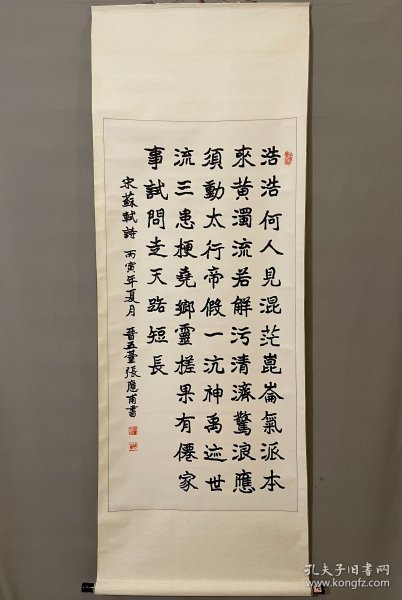 浩浩何人見混茫崑崙氣派本
來黃濁流若解污清濟驚浪應
須動太行帝假一神禹迹世
流三患梗堯鄉靈槎果有僊家
事試問天路短長
宋蘇軾詩 丙寅年夏月 晉五臺張應甫書
孔夫子旧书网
www.kongfz.com